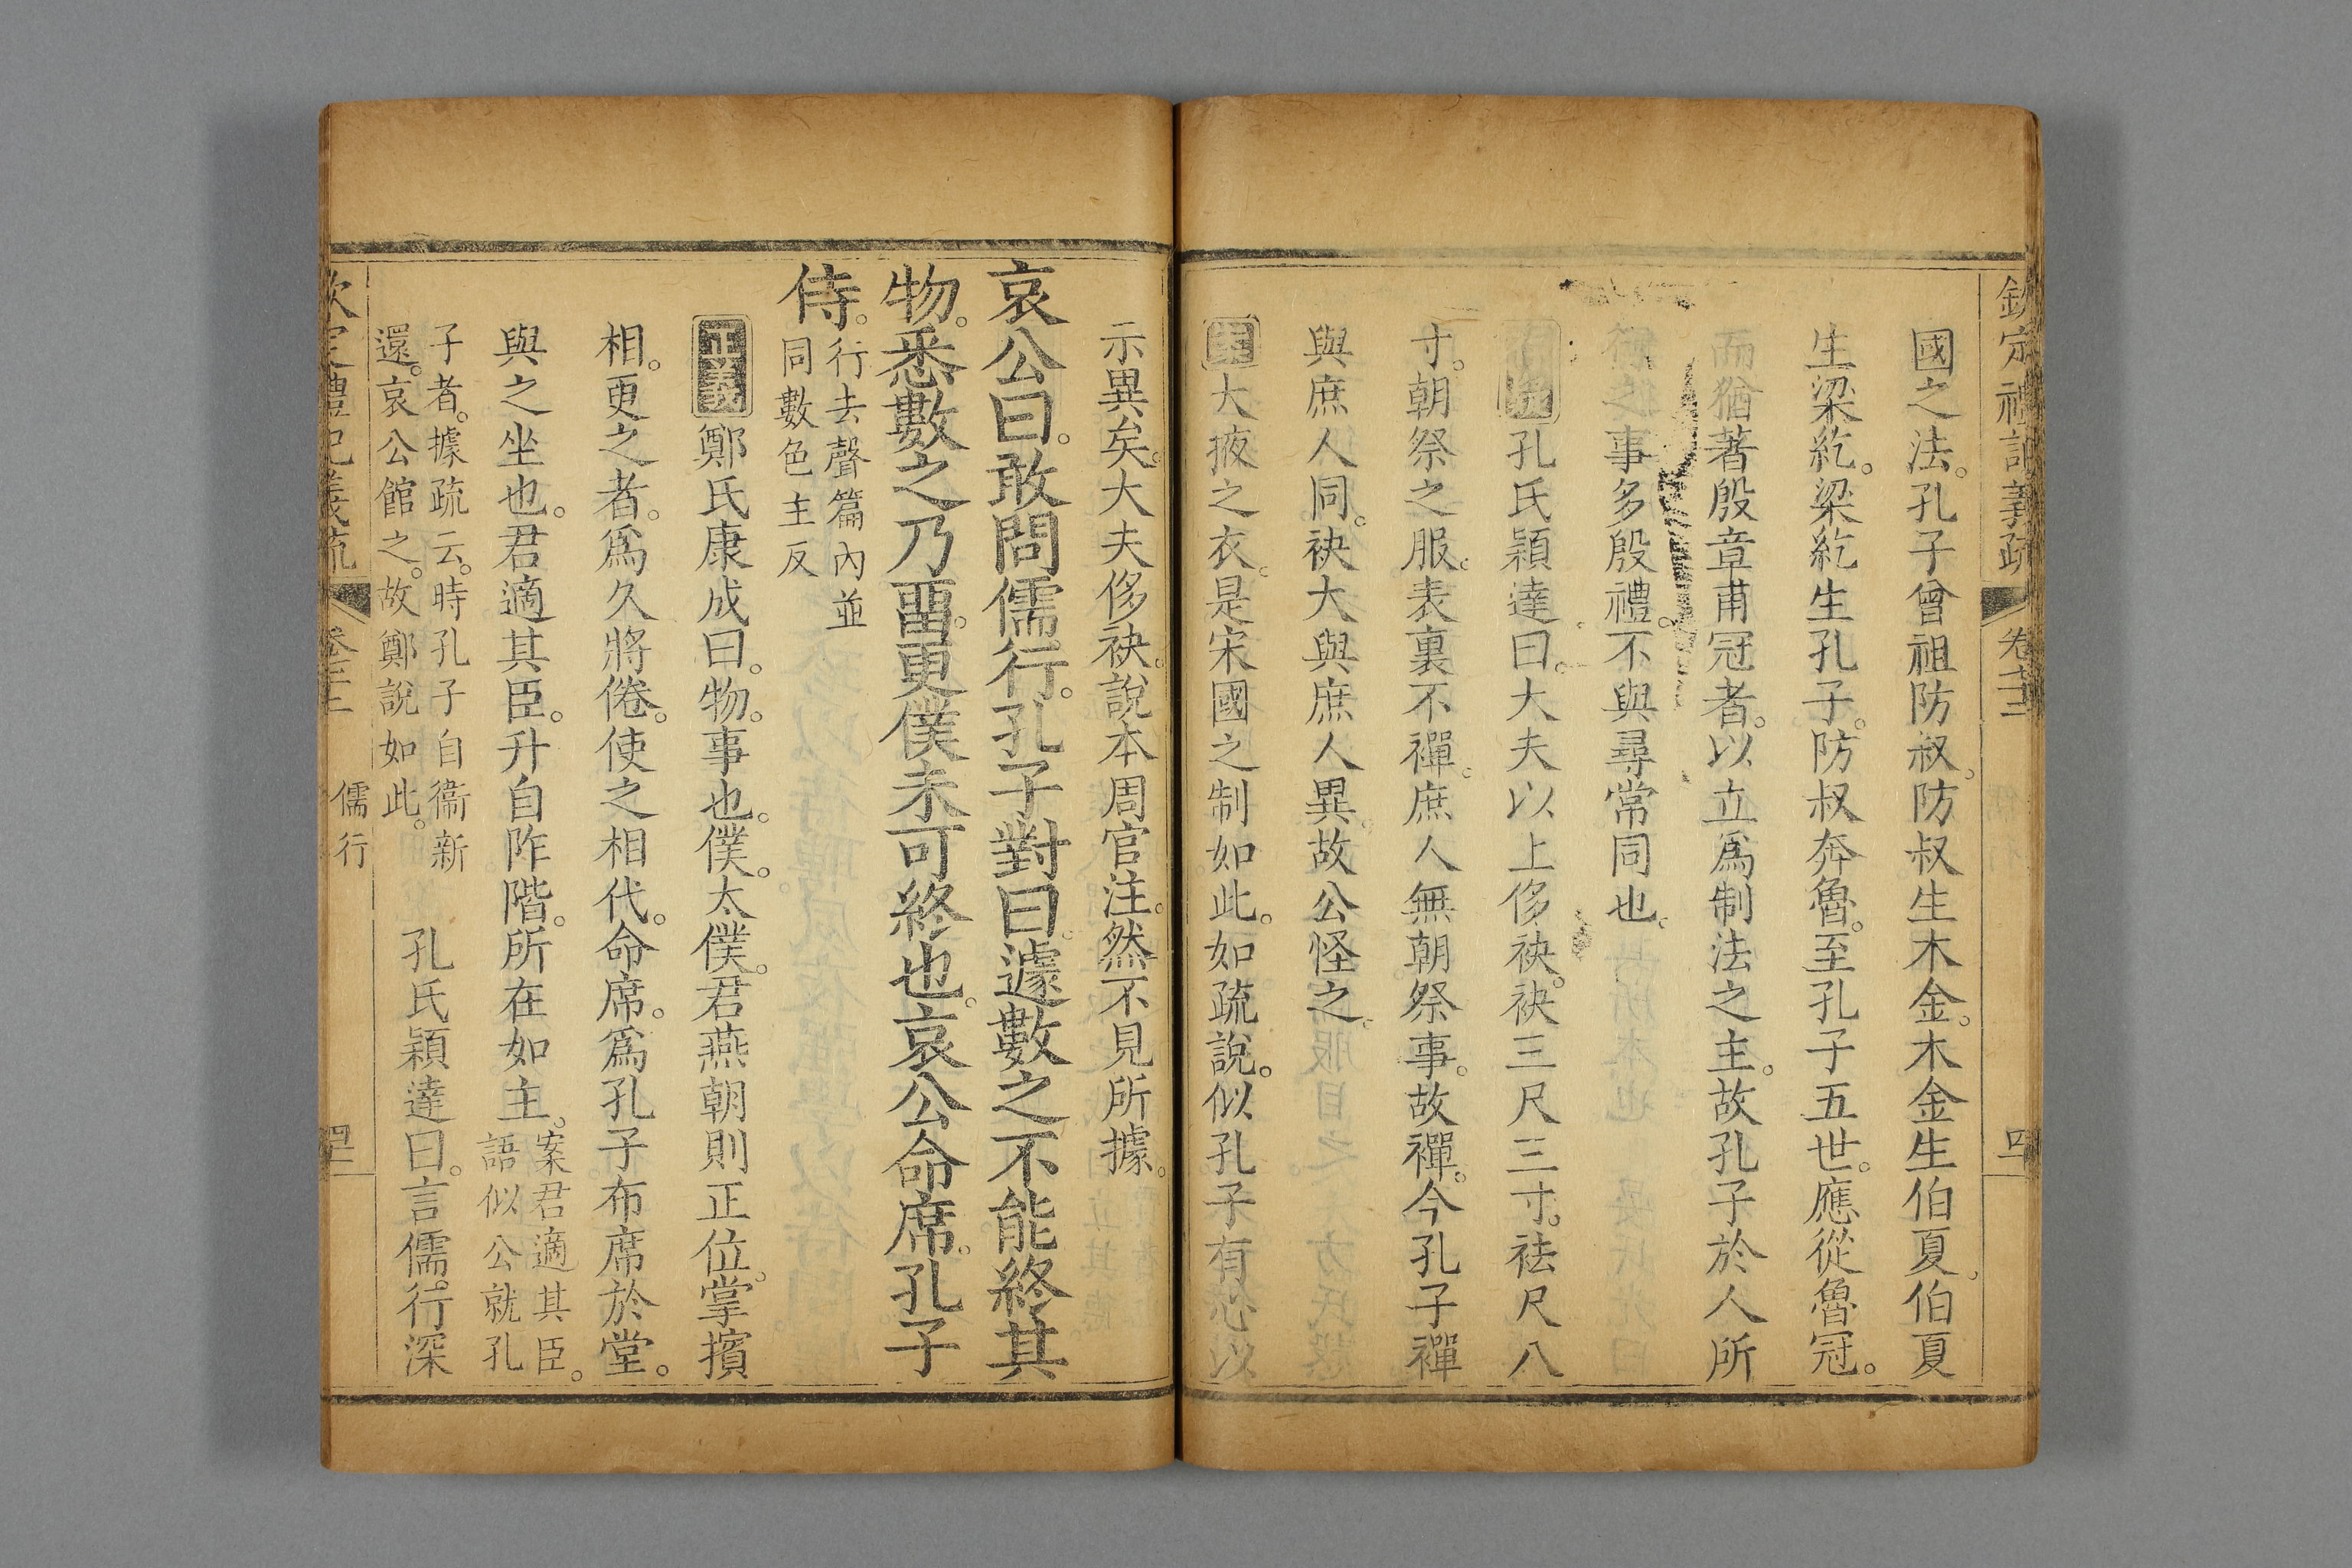 欽定禮記義疏 卷
國之法孔子曾祖防叔防叔生木金木金生伯夏伯夏
生梁紇梁紇生孔子防叔奔魯至孔子五世應從魯冠
而猶著殷章甫冠者以立爲制法之主故孔子於人所
事多殷禮不與尋常同也
孔氏穎達曰大夫以上侈袂袂三尺三寸袪尺八
寸朝祭之服表裏不襌庶人無朝祭事故襌今孔子襌
與庶人同袂大與庶人異故公怪之
案大掖之衣是宋國之制如此如疏說似孔子有心以
示異矣大夫侈袂說本周官注然不見所據
哀公曰敢問儒行孔子對曰遽數之不能終其
物悉數之乃畱更僕未可終也哀公命席孔子
侍
行去聲篇內並
同數色主反
正義鄭氏康成曰物事也僕太僕君燕朝則正位掌擯
相更之者爲久將倦使之相代命席爲孔子布席於堂
與之坐也君適其臣升自阼階所在如主
案君適其臣
語似公就孔
子者據疏云時孔子自衞新
還哀公館之故鄭說如此
孔氏穎達曰言儒行深
欽定禮記義疏 卷 儒行